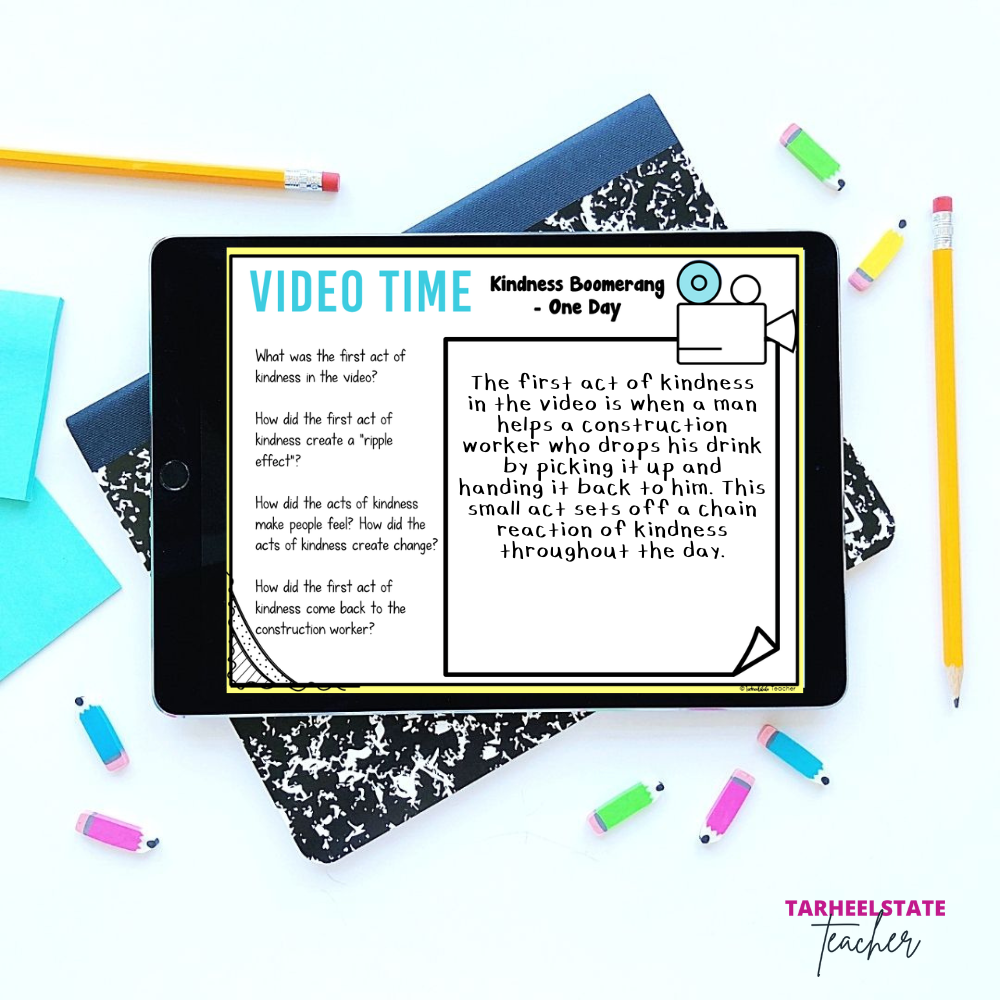 VIDEO TIME
Kindness Boomerang
- One Day
What was the first act of
kindness in the video?
How did the first act of
kindness create a "ripple
effect"?
How did the acts of kindness
make people feel? How did the
acts of kindness create change?
How did the first act of
kindness come back to the
construction worker?
The first act of kindness
in the video is when a man
helps a construction
worker who drops his drink
by picking it up and
handing it back to him. This
small act sets off a chain
reaction of kindness
throughout the day.
© Tarheelstate Teacher
TARHEELSTATE
Teacher